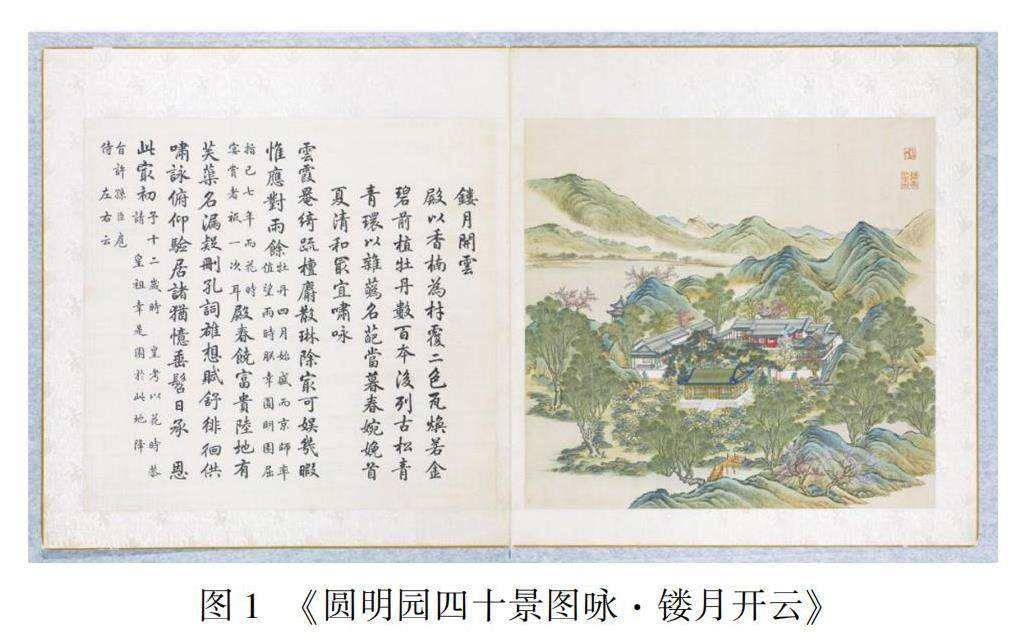 鏤月開雲
殿以香楠為材覆二色瓦煥若金
碧前植牡丹數百本後列古松青
青環以雜蘤名葩當暮春婉娩首
夏清和㝡宜嘯咏
雲霞罨綺疏檀麝散琳除㝡可娛幾暇
惟應對雨餘牡丹四月始盛而京師率值望雨時朕幸圓明園屈
指已七年而花時宴賞者祇一次耳殿春饒富貴陸地有
芙蕖名漏疑刪孔詞雄想賦舒徘徊供
嘯詠俯仰驗居諸猶憶垂髫日承 恩
此㝡初予十二歲時 皇考以花時恭請 皇祖幸是園於此地降
旨許孫臣扈侍左右云
图1 《圆明园四十景图咏·镂月开云》